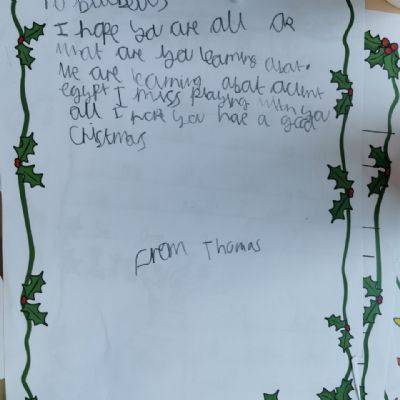 I hope you are all ok
what are you learning abat.
We are learning abat aciint
egypt I miss playing with you
all I hope you have a good
Cristmas
From Thomas